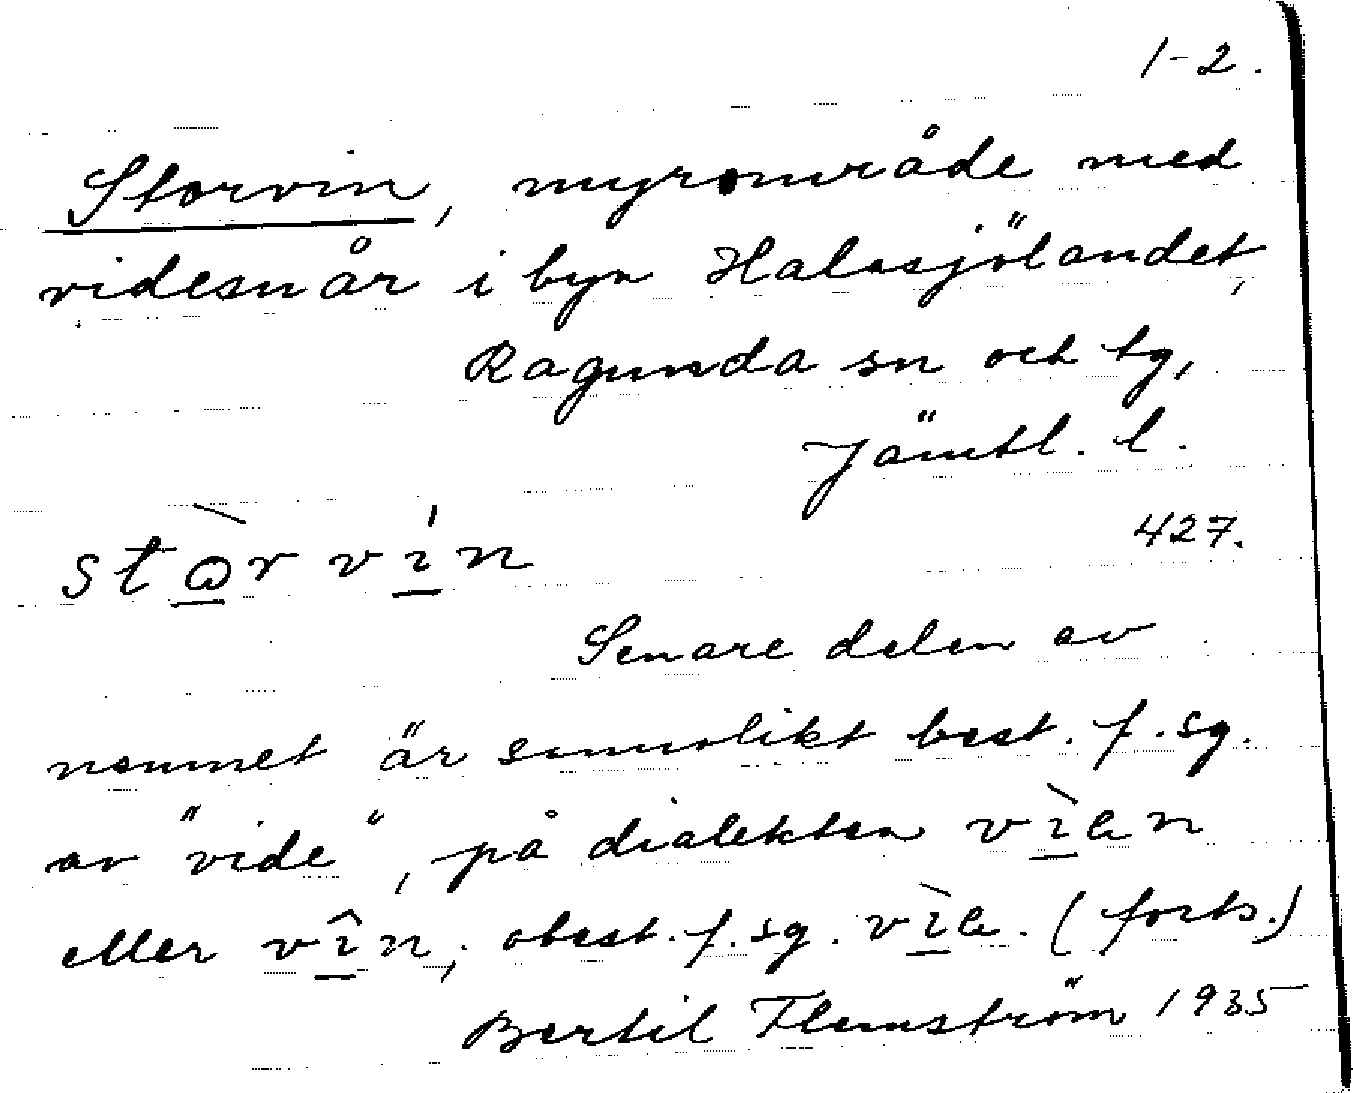 1-2.
Storvin, myrområde med
videsnår i byn Halasjölandet,
Ragunda sn och tg,
Jämtl. l.
427.
stɷ̠̀r ví̠n
Senare delen av
namnet är sannolikt best. f. sg.
av "vide", på dialekten vì̠en
eller vî̠n, obest. f. sg. vì̠e. (forts.)
Bertil Flemström 1935